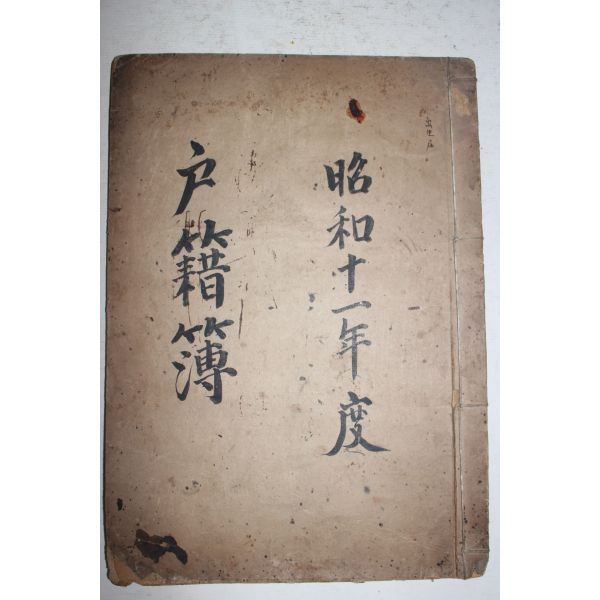 昭和十一年度
戸籍簿